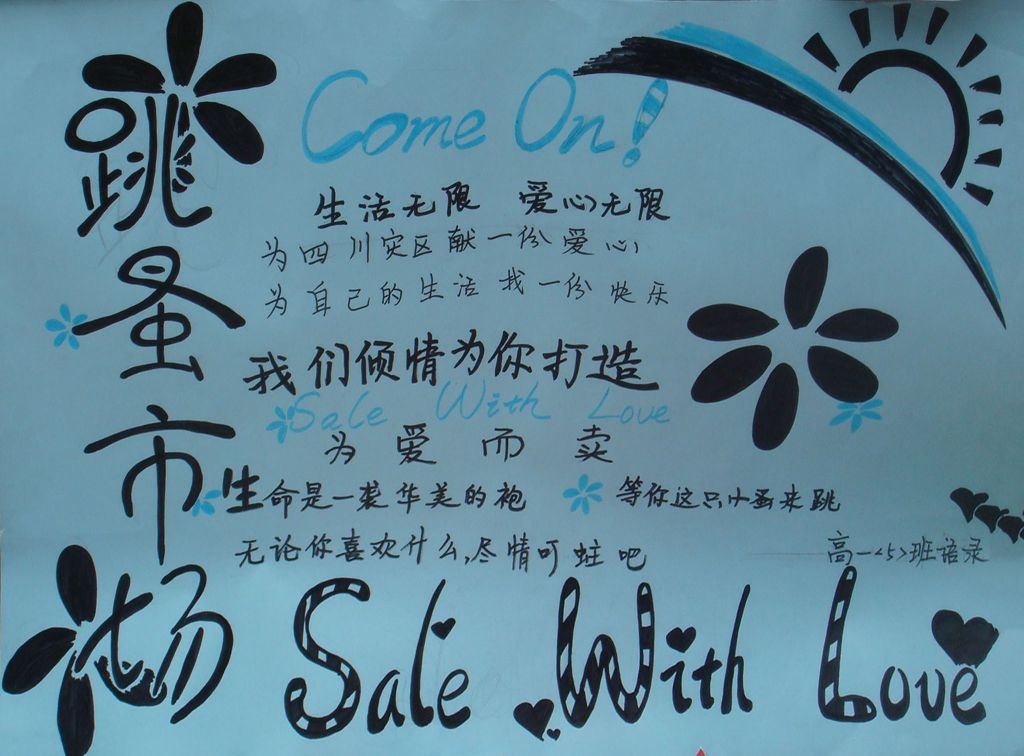 跳蚤市场
Come On!
生活无限 爱心无限
为四川灾区献一份爱心
为自己的生活找一份快乐
我们倾情为你打造
Sale With Love
为爱而卖
生命是一袭华美的袍 等你这只小蚤来跳
无论你喜欢什么,尽情叮蛀吧
高一<5>班语录
Sale With Love